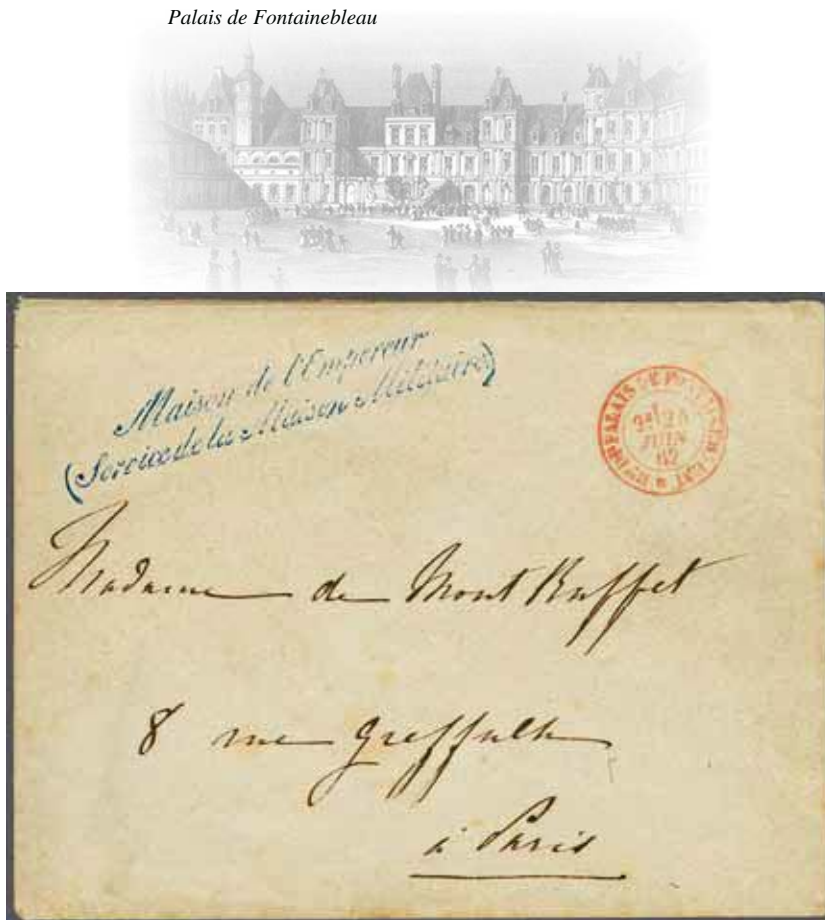 Palais de Fontainebleau
Maison de l'Empereur
(Service de la Maison Militaire)
PALAIS DE
24
JUIN
62
Madame de Mont Ruffet
8 rue Greffulh
à Paris